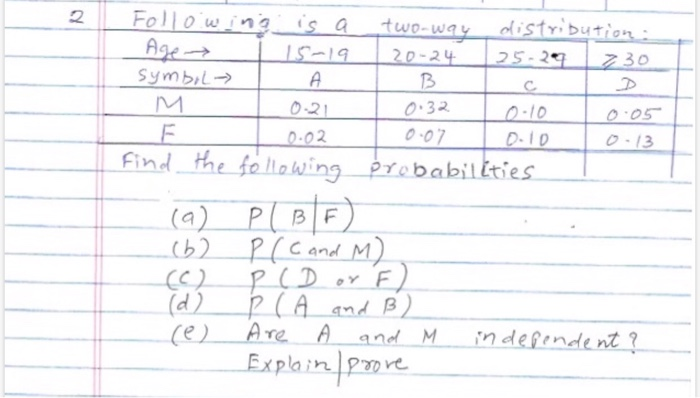 2 Following is a two-way distribution:
Age → 15-19 20-24 25-29 ≥30
Symbol → A B C D
M 0.21 0.32 0.10 0.05
F 0.02 0.07 0.10 0.13
Find the following probabilities
(a) P(B|F)
(b) P(C and M)
(c) P(D or F)
(d) P(A and B)
(e) Are A and M independent?
Explain/prove